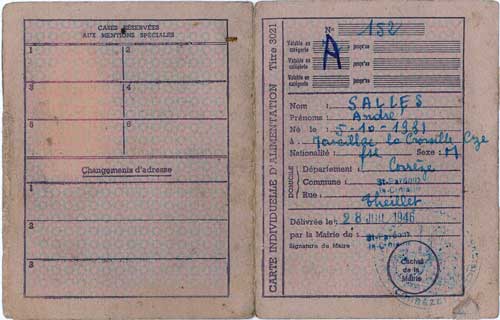 CASES RÉSERVÉES
AUX MENTIONS SPÉCIALES
1 2
3 4
5 6
Changements d'adresse
1
2
3
CARTE INDIVIDUELLE D'ALIMENTATION Titre 3021
N° 152
Valable en catégorie jusqu'au
A
Valable en catégorie jusqu'au
Valable en catégorie jusqu'au
Nom : SALLES
Prénoms : André
Né le : 5-10-1931
à
Nationalité : fse Sexe : M
DOMICILE
Département : Corrèze
Commune : St-Pardoux
Rue : Theillet
Délivrée le : 28 JUIL 1946
par la Mairie de : St-Pardoux
Signature du Maire
Cachet
de la
Mairie
CORRÈZE